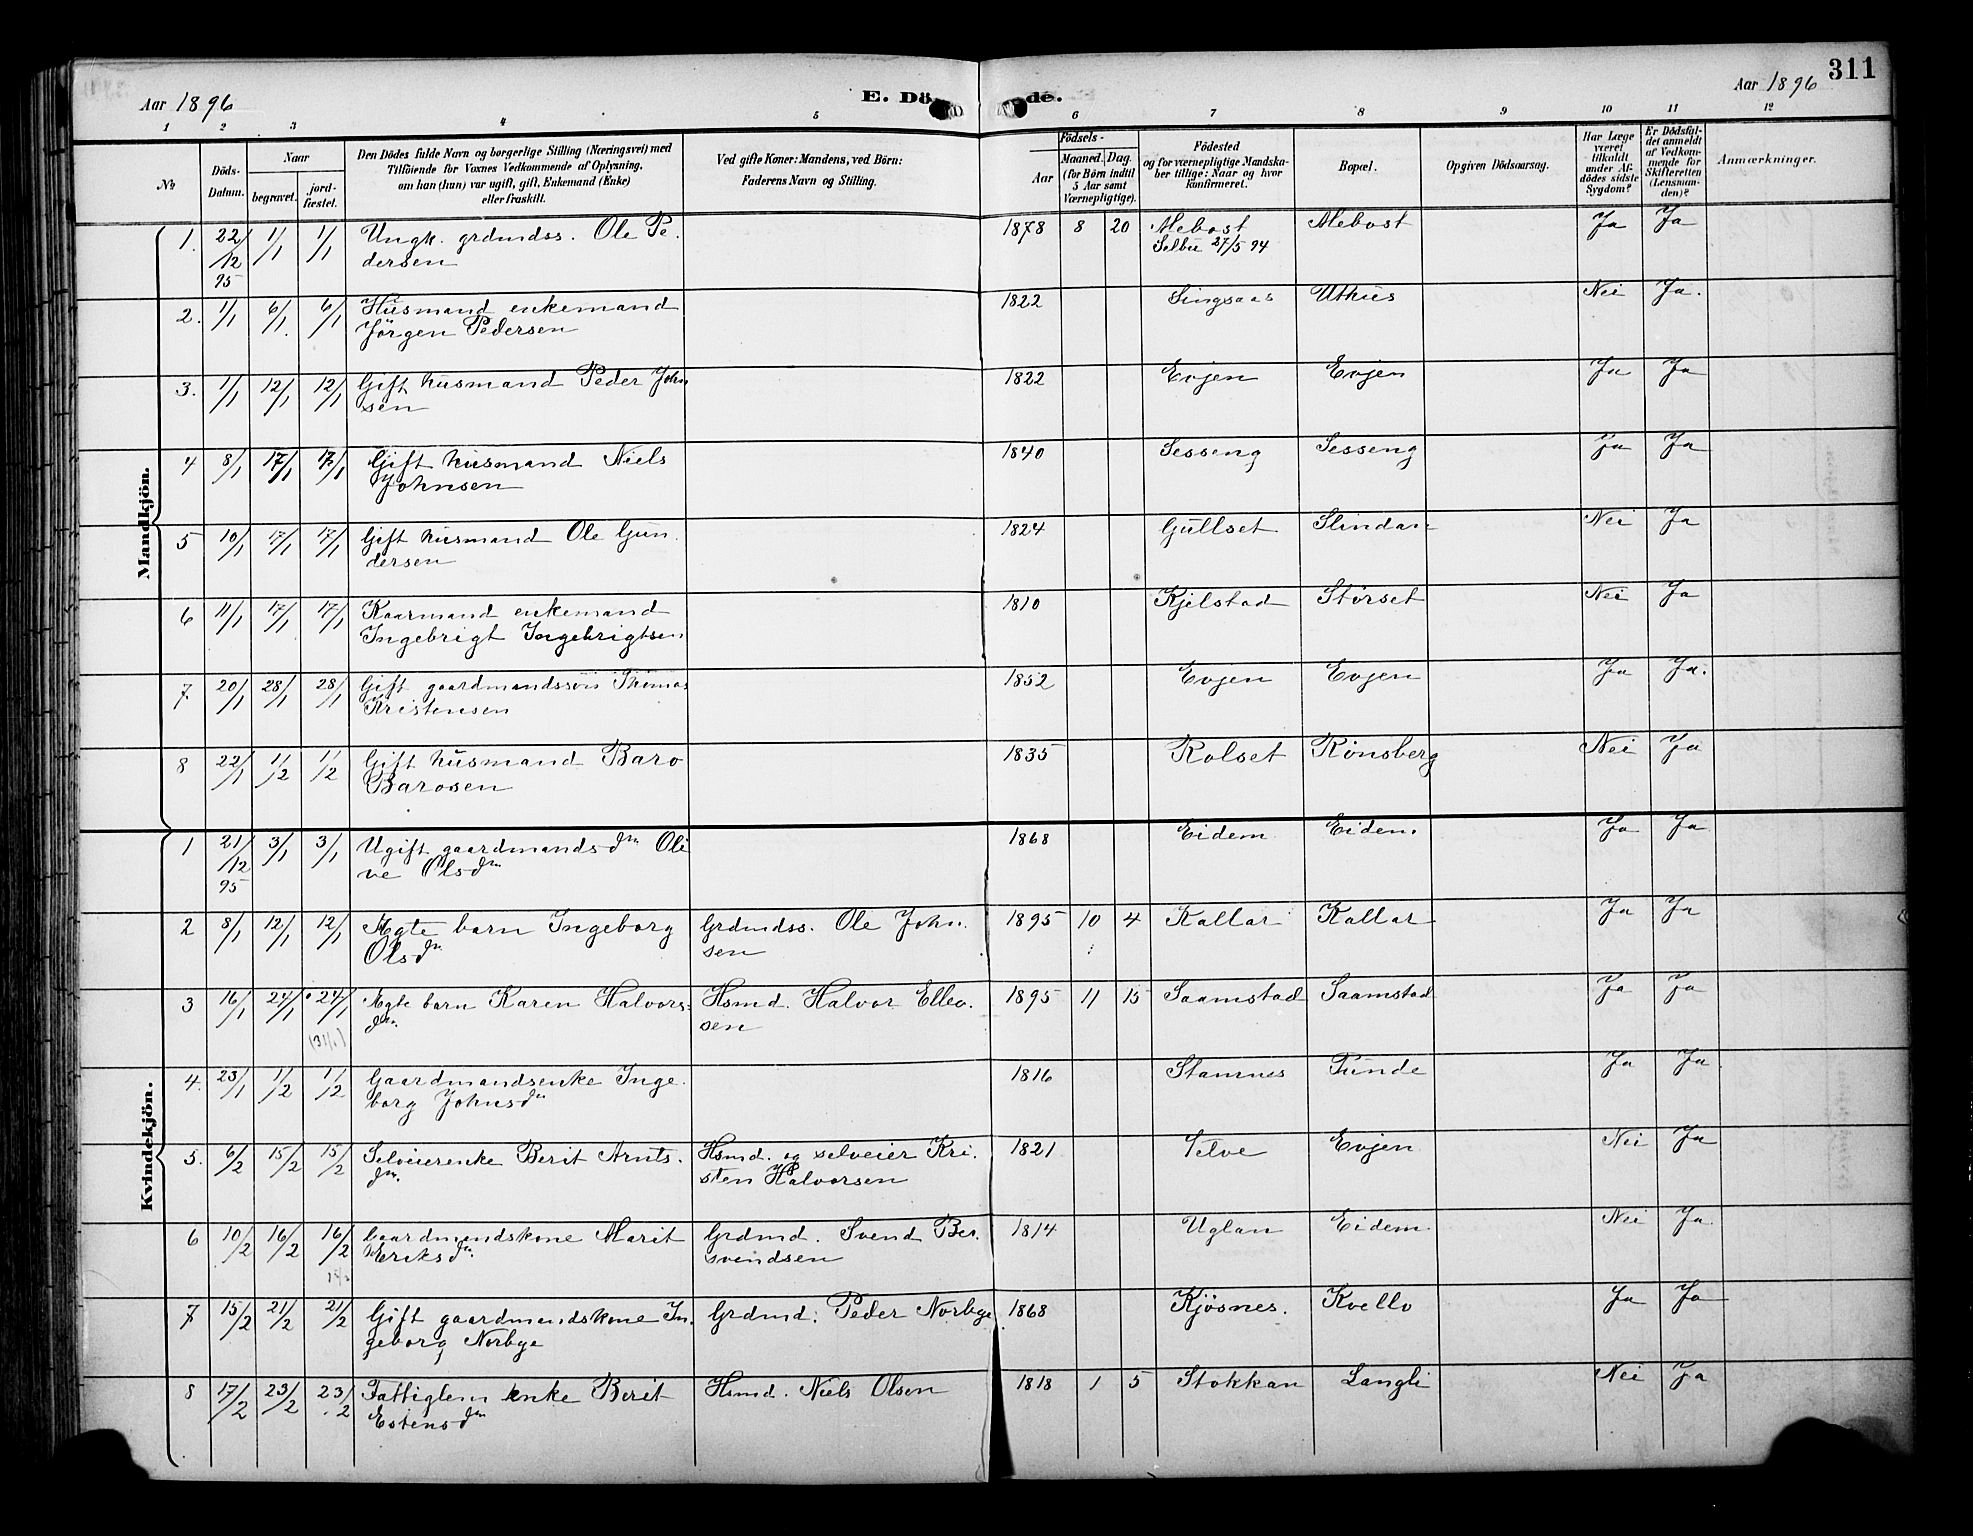 311
Aar 1896
E. Dö de.
Aar 1896
1 2 3 4 5 6 7 8 9 10 11 12
No
Döds-Datum.
Naar
begravet.
jord-fæstet.
Den Dödes fulde Navn og borgerlige Stilling (Næringsvei) med
Tilföiende for Voxnes Vedkommende af Oplysning.
om han (hun) var ugift, gift, Enkemand (Enke)
eller fraskilt.
Ved gifte Koner: Mandens, ved Börn:
Faderens Navn og Stilling.
Födsels-
Aar
Maaned. Dag.
(for Börn indtil
5 Aar samt
Værnepligtige).
Födested
og for værnepligtige Mandska-
ber tillige: Naar og hvor
konfirmeret.
Bopæl.
Opgiven Dödsaarsag.
Har Læge
været
tilkaldt
under Af-
dödes sidste
Sygdom?
Er Dödsfal-
det anmeldt
af Vedkom-
mende for
Skifteretten
(Lensman-
den)?
Anmærkninger.
Mandkjön.
1. 22/12 95 1/1 1/1 Ungk. grdmdss. Ole Pe-
dersen 1878 8 20 Alebost
Selbu 27/5 94 Alebost Ja Ja
2. 1/1 6/1 6/1 Husmand enkemand
Jörgen Pedersen 1822 Singsaas Uthus Nei Ja.
3. 1/1 12/1 12/1 Gift husmand Peder John
sen 1822 Evjen Evjen Ja Ja
4 8/1 17/1 17/1 Gift husmand Niels
Johnsen 1840 Sesseng Sesseng Ja Ja
5 10/1 17/1 17/1 Gift husmand Ole Gun-
dersen 1824 Gullset Slindan Nei Ja
6 11/1 17/1 17/1 Kaarmand enkemand
Ingebrigt Ingebrigtsen 1810 Kjelstad Størset Nei Ja
7. 20/1 28/1 28/1 Gift gaardmandssøn Thomas
Kristensen 1852 Evjen Evjen Ja Ja.
8 22/1 1/2 1/2 Gift husmand Baro
Barosen 1835 Rolset Rønsberg Nei Ja
Kvindekjön.
1 21/12 95 3/1 3/1 Ugift gaardmandsdtr Oli
ve Olsdtr 1868 Eidem Eidem. Ja Ja
2 8/1 12/1 12/1 Ægte barn Ingeborg
Olsdtr Grdmdss. Ole John-
sen 1895 10 4 Kallar Kallar Ja Ja
3 16/1 24/1 24/1 Ægte barn Karen Halvors-
dtr. Hsmd. Halvor Ellev-
sen 1895 11 15 Saamstad Saamstad Ja Ja
4. 23/1 1/2 1/2 Gaardmandsenke Inge-
borg Johnsdtr 1816 Stamnes Tunde Ja Ja
5. 6/2 15/2 15/2 Selveierenke Berit Arnts-
dtr. Hsmd. og selveier Kri-
sten Halvorsen 1821 Selve Evjen Nei Ja
6 10/2 16/2 16/2 Gaardmandskone Marit
Eriksdtr. Grdmd. Svend Ber-
svendsen 1814 Uglan Eidem. Nei Ja
7 15/2 21/2 21/2 Gift gaardmandskone In-
geborg Norbye Grdmd. Peder Norbye 1868 Kjösnes. Kvello Ja Ja
8 17/2 23/2 23/2 Fattiglem enke Berit
Estensdtr Hsmd. Niels Olsen 1818 1 5 Stokkan Langli Nei Ja